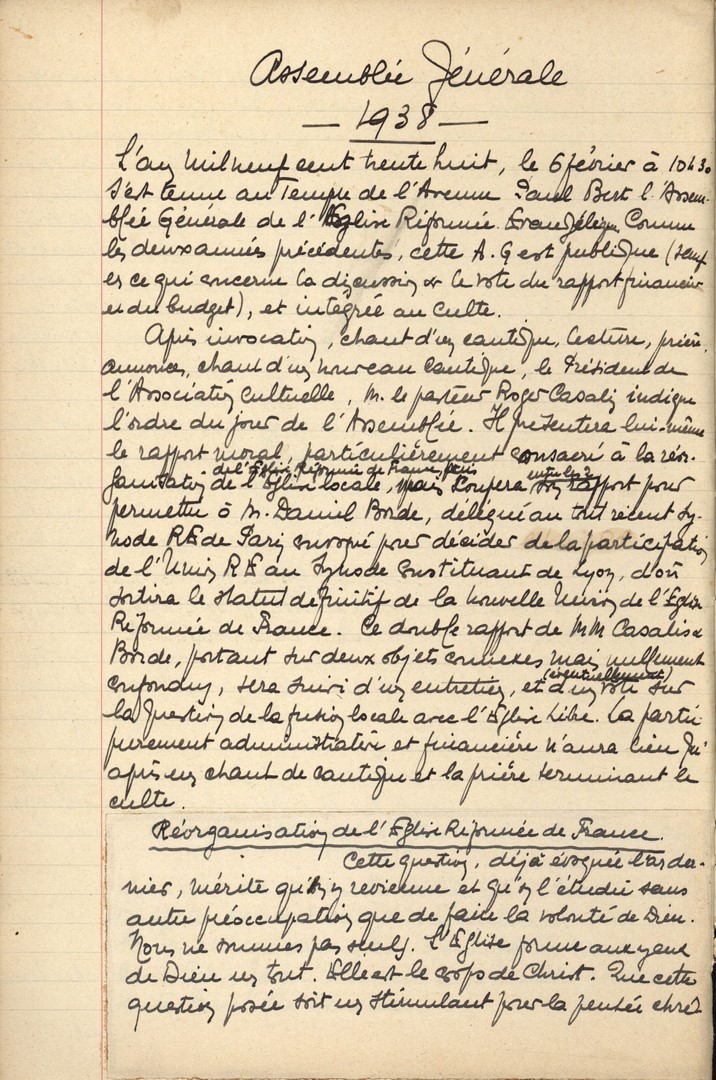 Assemblée Générale
— 1938 —
L'an mil neuf cent trente huit, le 6 février à 10h30
s'est tenue au Temple de l'Avenue Paul Bert l'Assem-
blée Générale de l'Eglise Réformée Evangélique. Comme
les deux années précédentes, cette A.G est publique (sauf
en ce qui concerne la discussion & le vote du rapport financier
et du budget), et intégrée au culte.
Après invocation, chant d'un cantique, lecture, prière,
annonces, chant d'un nouveau cantique, le Président de
l'Association Cultuelle, M. le pasteur Roger Casalis indique
l'ordre du jour de l'Assemblée. Il présentera lui-même
le rapport moral, particulièrement consacré à la réor-
de l'Eglise Réformée de France, puis
ganisation de l'Eglise locale, mais coupera son rapport pour
permettre à M. Daniel Borde, délégué au tout récent Sy-
node RE de Paris convoqué pour décider de la participation
de l'Union RE au Synode Constituant de Lyon, d'où
sortira le statut définitif de la nouvelle Union de l'Eglise
Réformée de France. Ce double rapport de MM Casalis &
Borde, portant sur deux objets connexes mais nullement
(éventuellement)
confondus, sera suivi d'un entretien, et d'un vote sur
la question de la fusion locale avec l'Eglise Libre. La partie
purement administrative et financière n'aura lieu qu'
après un chant de cantique et la prière terminant le
culte.
Réorganisation de l'Eglise Réformée de France.
Cette question, déjà évoquée l'an der-
nier, mérite qu'on y revienne et qu'on l'étudie sans
autre préoccupation que de faire la volonté de Dieu.
Nous ne sommes pas seuls. L'Eglise forme aux yeux
de Dieu un tout. Elle est le corps de Christ. Que cette
question posée soit un stimulant pour la pensée chré-